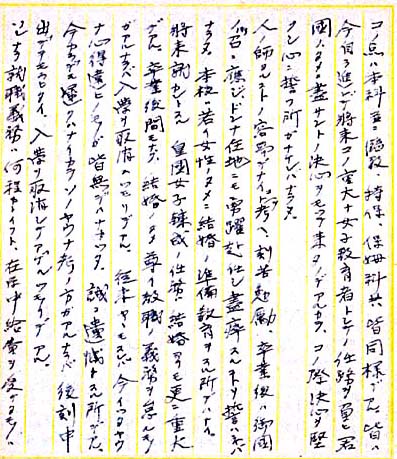 コノ点ハ本科並ニ臨教、特保、保姆科共、皆同様デアル。皆ハ
今日ヨリ進ンデ将来コノ重大ナ女子教育者トシテノ任務ヲ負ヒ君
国ノタメニ盡サントノ決心ヲモッテ来タノデアルカラ、コノ際決心ヲ堅
クシ心ニ誓フ所ガナケレバナラヌ。
人ノ師タルコトノ容易デナイコトヲ考ヘ、刻苦勉励、卒業後ハ御国
ノ召ニ應ジドンナ任地ニモ勇躍赴任シ盡瘁スルコトヲ誓ハネバ
ナラヌ。本校ハ若イ女性ノタメニ結婚ノ準備教育ヲスル所デハナイ。
将来就カントスル皇国女子錬成ノ任務ハ結婚ヨリモ更ニ重大
デアル。卒業後間モナク、結婚ノタメ尊イ教職ノ義務ヲ怠ルモノ
ガアルナラバ入学ヲ取消スツモリデアル。従来ヤヽモスレバ今イッタヤウ
ナ心得違ヒノモノガ皆無デハナカッタ。誠ニ遺憾トスル所デアル。
今カラデモ遅クハナイカラソノヤウナ考ノ方ガアルナラバ後刻申
出デテモラヒタイ。入学ヲ取消シテアゲルツモリデアル。
シカラバ就職義務ハ何程カトイフト、在学中給費ヲ受ケタモノハ